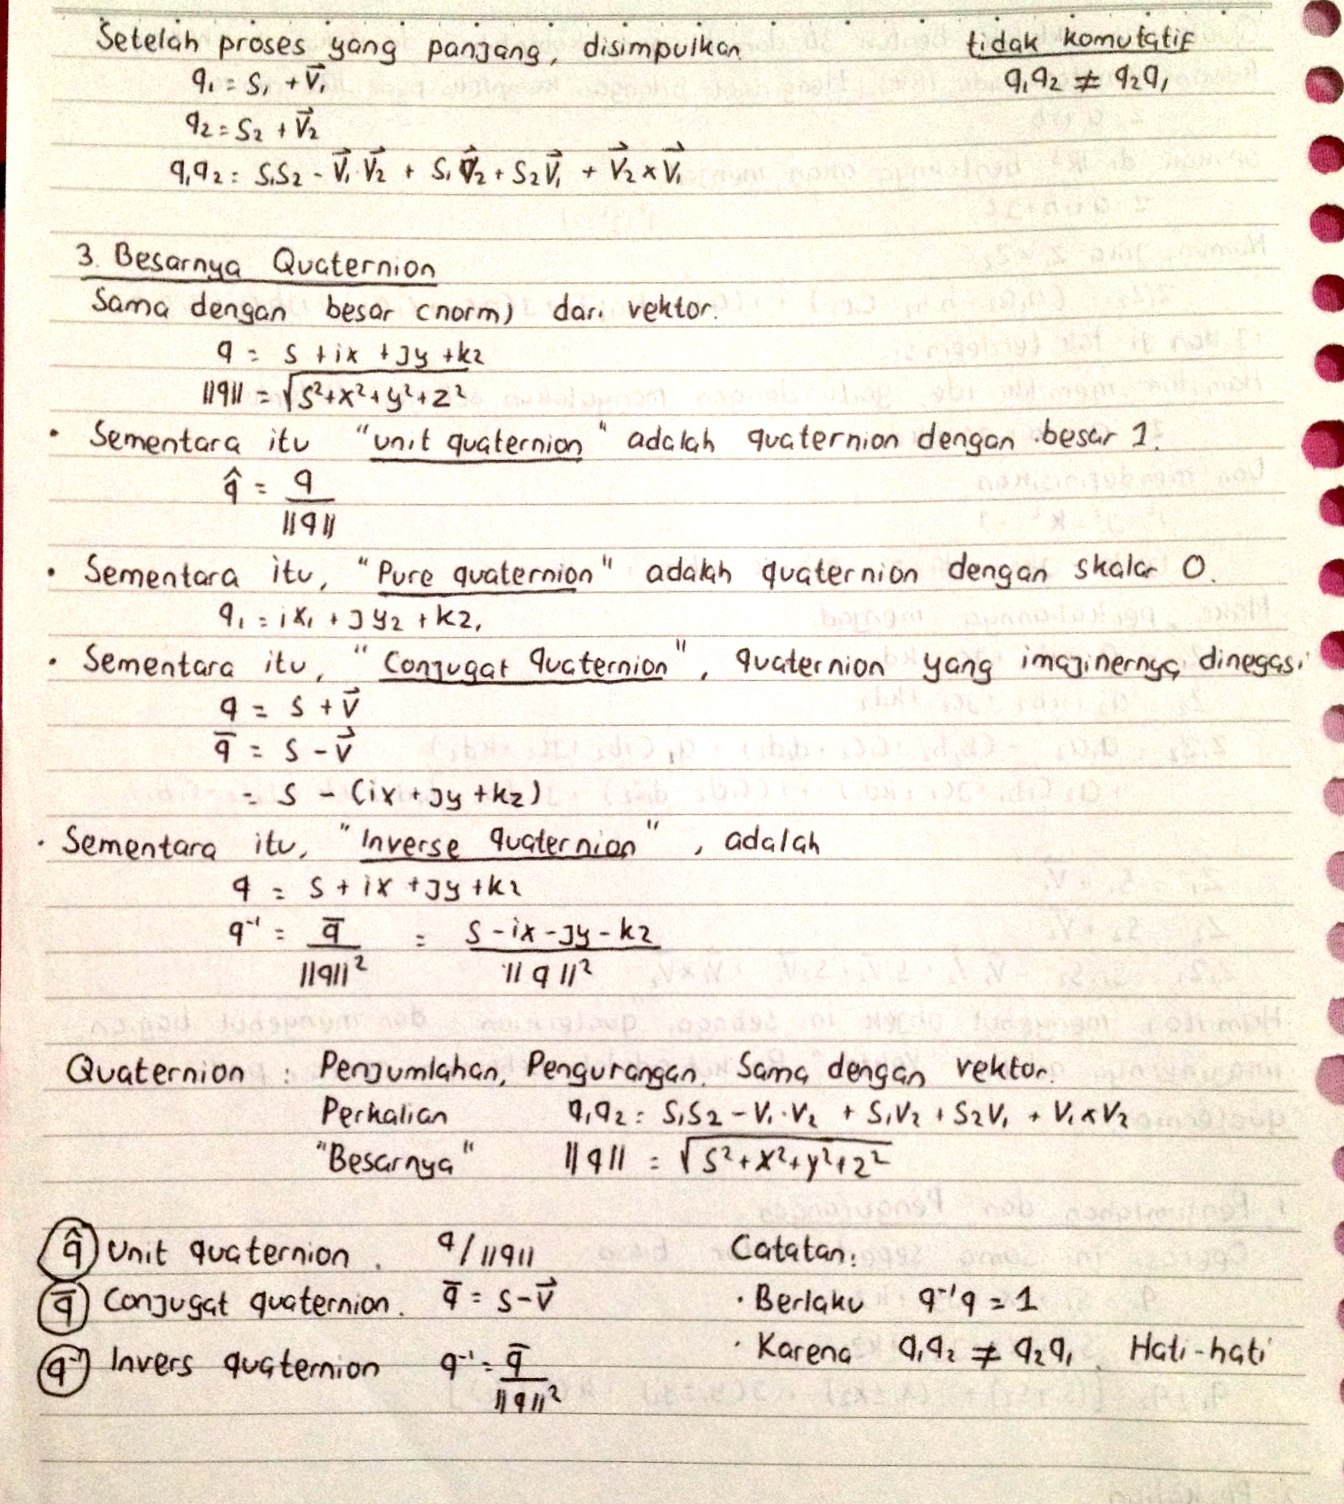 Setelah proses yang panjang, disimpulkan tidak komutatif
q₁ = S₁ + V⃗₁ q₁q₂ ≠ q₂q₁
q₂ = S₂ + V⃗₂
q₁q₂ = S₁S₂ - V⃗₁ V⃗₂ + S₁V⃗₂ + S₂V⃗₁ + V⃗₂ × V⃗₁
3. Besarnya Quaternion
Sama dengan besar (norm) dari vektor.
q = S + ix + jy + kz
||q|| = √(S² + x² + y² + z²)
• Sementara itu "unit quaternion" adalah quaternion dengan besar 1.
q̂ = q / ||q||
• Sementara itu, "Pure quaternion" adalah quaternion dengan skalar 0.
q₁ = ix₁ + jy₂ + kz₁
• Sementara itu, "Conjugat Quaternion", quaternion yang imajinernya dinegasi
q = S + V⃗
q̅ = S - V⃗
= S - (ix + jy + kz)
• Sementara itu, "Inverse quaternion", adalah
q = S + ix + jy + kz
q⁻¹ = q̅ / ||q||² = S - ix - jy - kz / ||q||²
Quaternion : Penjumlahan, Pengurangan. Sama dengan vektor.
Perkalian q₁q₂ = S₁S₂ - V₁·V₂ + S₁V₂ + S₂V₁ + V₁×V₂
"Besarnya" ||q|| = √(S² + x² + y² + z²)
q̂ Unit quaternion. q / ||q|| Catatan:
q̅ Conjugat quaternion. q̅ = S - V⃗ • Berlaku q⁻¹q = 1
q⁻¹ Invers quaternion q⁻¹ = q̅ / ||q||² • Karena q₁q₂ ≠ q₂q₁. Hati-hati